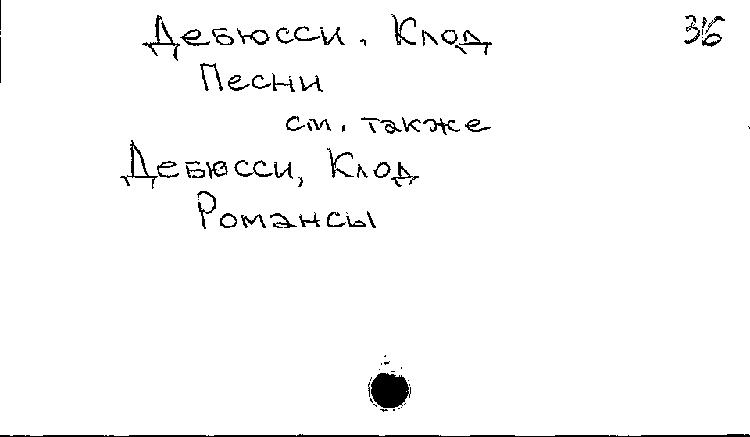 Дебюсси, Клод 316
Песни
см. также
Дебюсси, Клод
Романсы